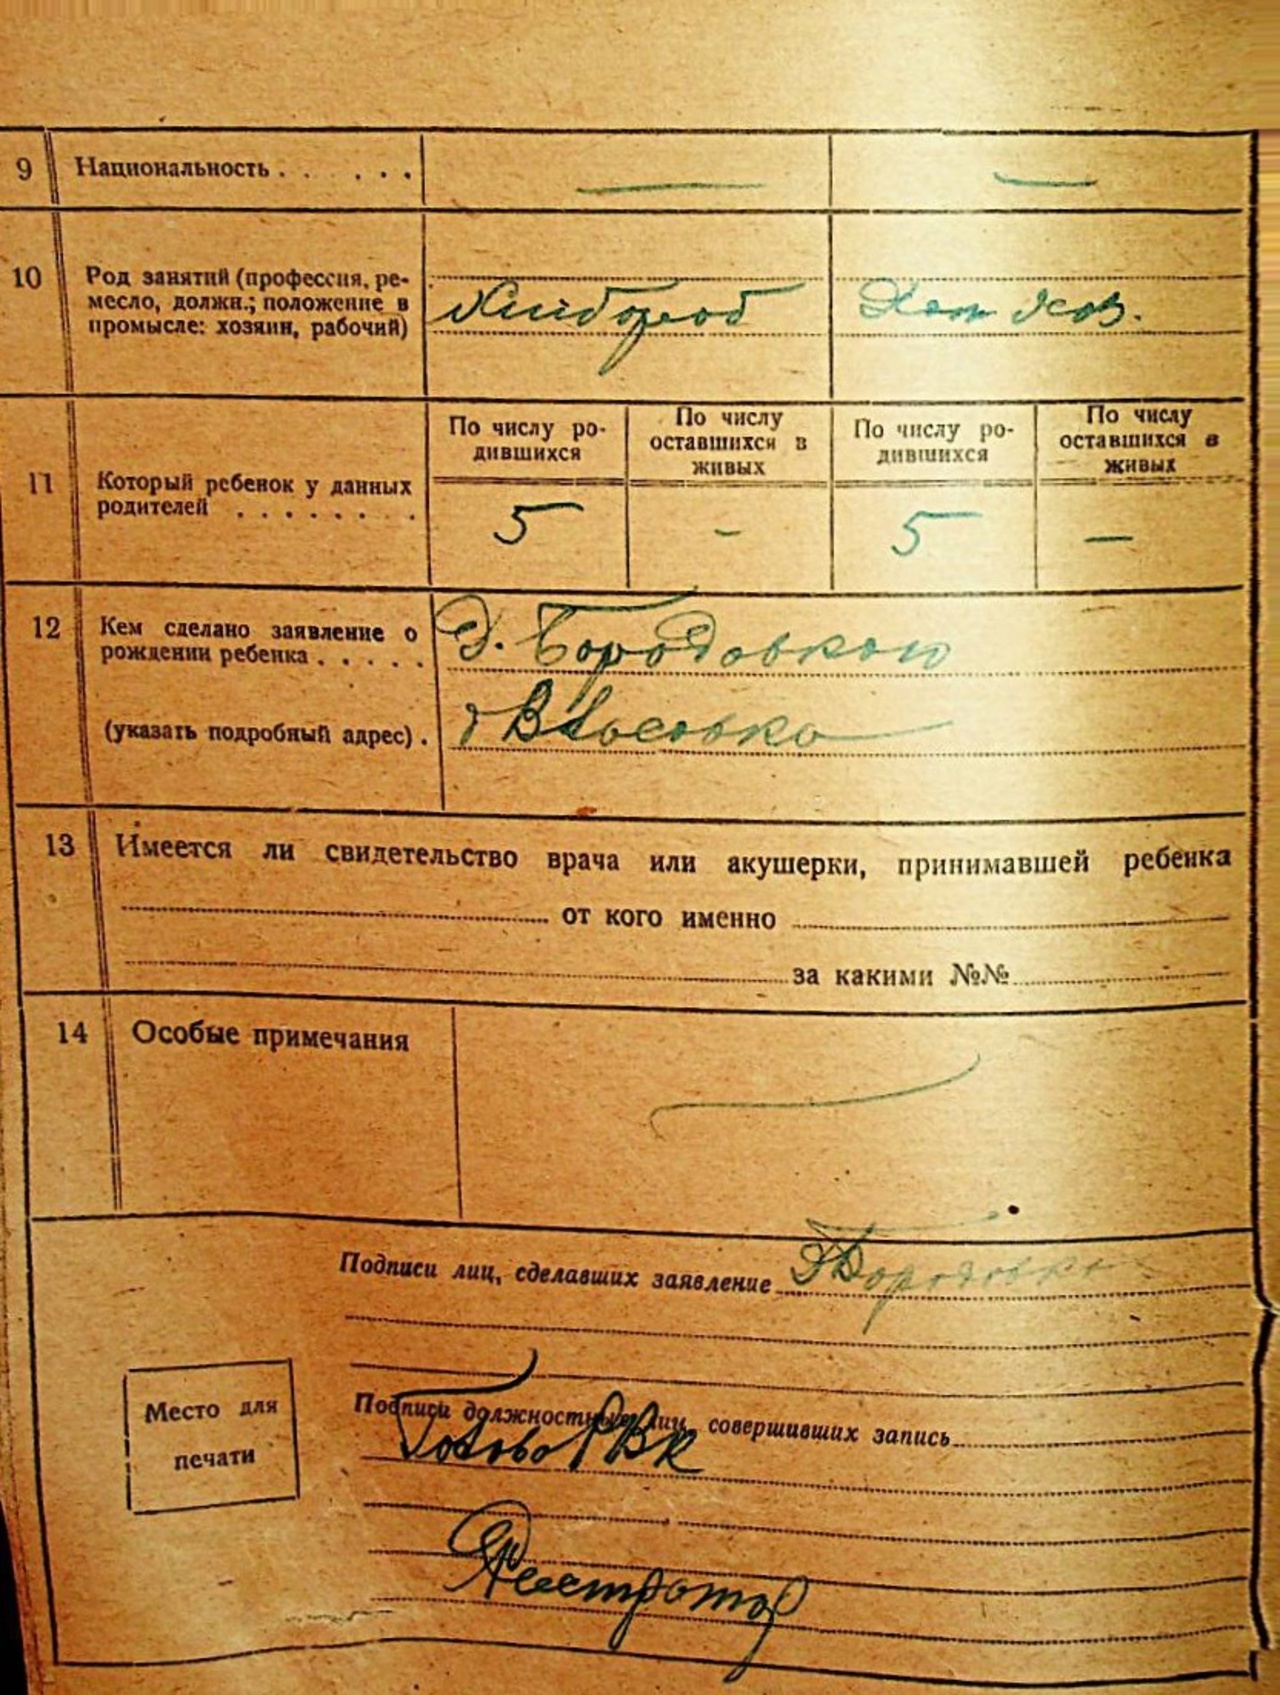 9 Национальность . . . . . . — —
10 Род занятий (профессия, ре-
месло, должн.; положение в
промысле: хозяин, рабочий)
Хлибороб
11 Который ребенок у данных
родителей . . . . . . . .
По числу ро-
дившихся
По числу
оставшихся в
живых
По числу ро-
дившихся
По числу
оставшихся в
живых
5 - 5 —
12 Кем сделано заявление о
рождении ребенка . . . . .
(указать подробный адрес) .
13 Имеется ли свидетельство врача или акушерки, принимавшей ребенка
от кого именно
за какими №№
14 Особые примечания
Подписи лиц, сделавших заявление
Место для
печати
Подписи должностных лиц, совершивших запись
Голова РВК
Реестратор